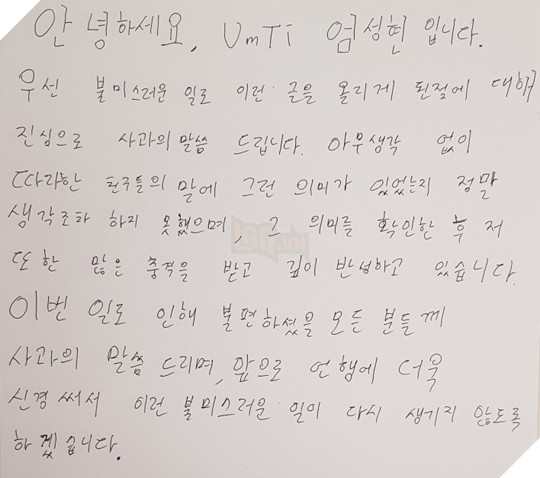 안녕하세요, UmTi 엄성현 입니다.
우선 불미스러운 일로 이런 글을 올리게 된점에 대해
진심으로 사과의 말씀 드립니다. 아무생각 없이
따라한 친구들의 말에 그런 의미가 있었는지 정말
생각조차 하지 못했으며, 그 의미를 확인한 후 저
또한 많은 충격을 받고 깊이 반성하고 있습니다.
이번 일로 인해 불편하셨을 모든 분들께
사과의 말씀 드리며, 앞으로 언행에 더욱
신경써서 이런 불미스러운 일이 다시 생기지 않도록
하겠습니다.